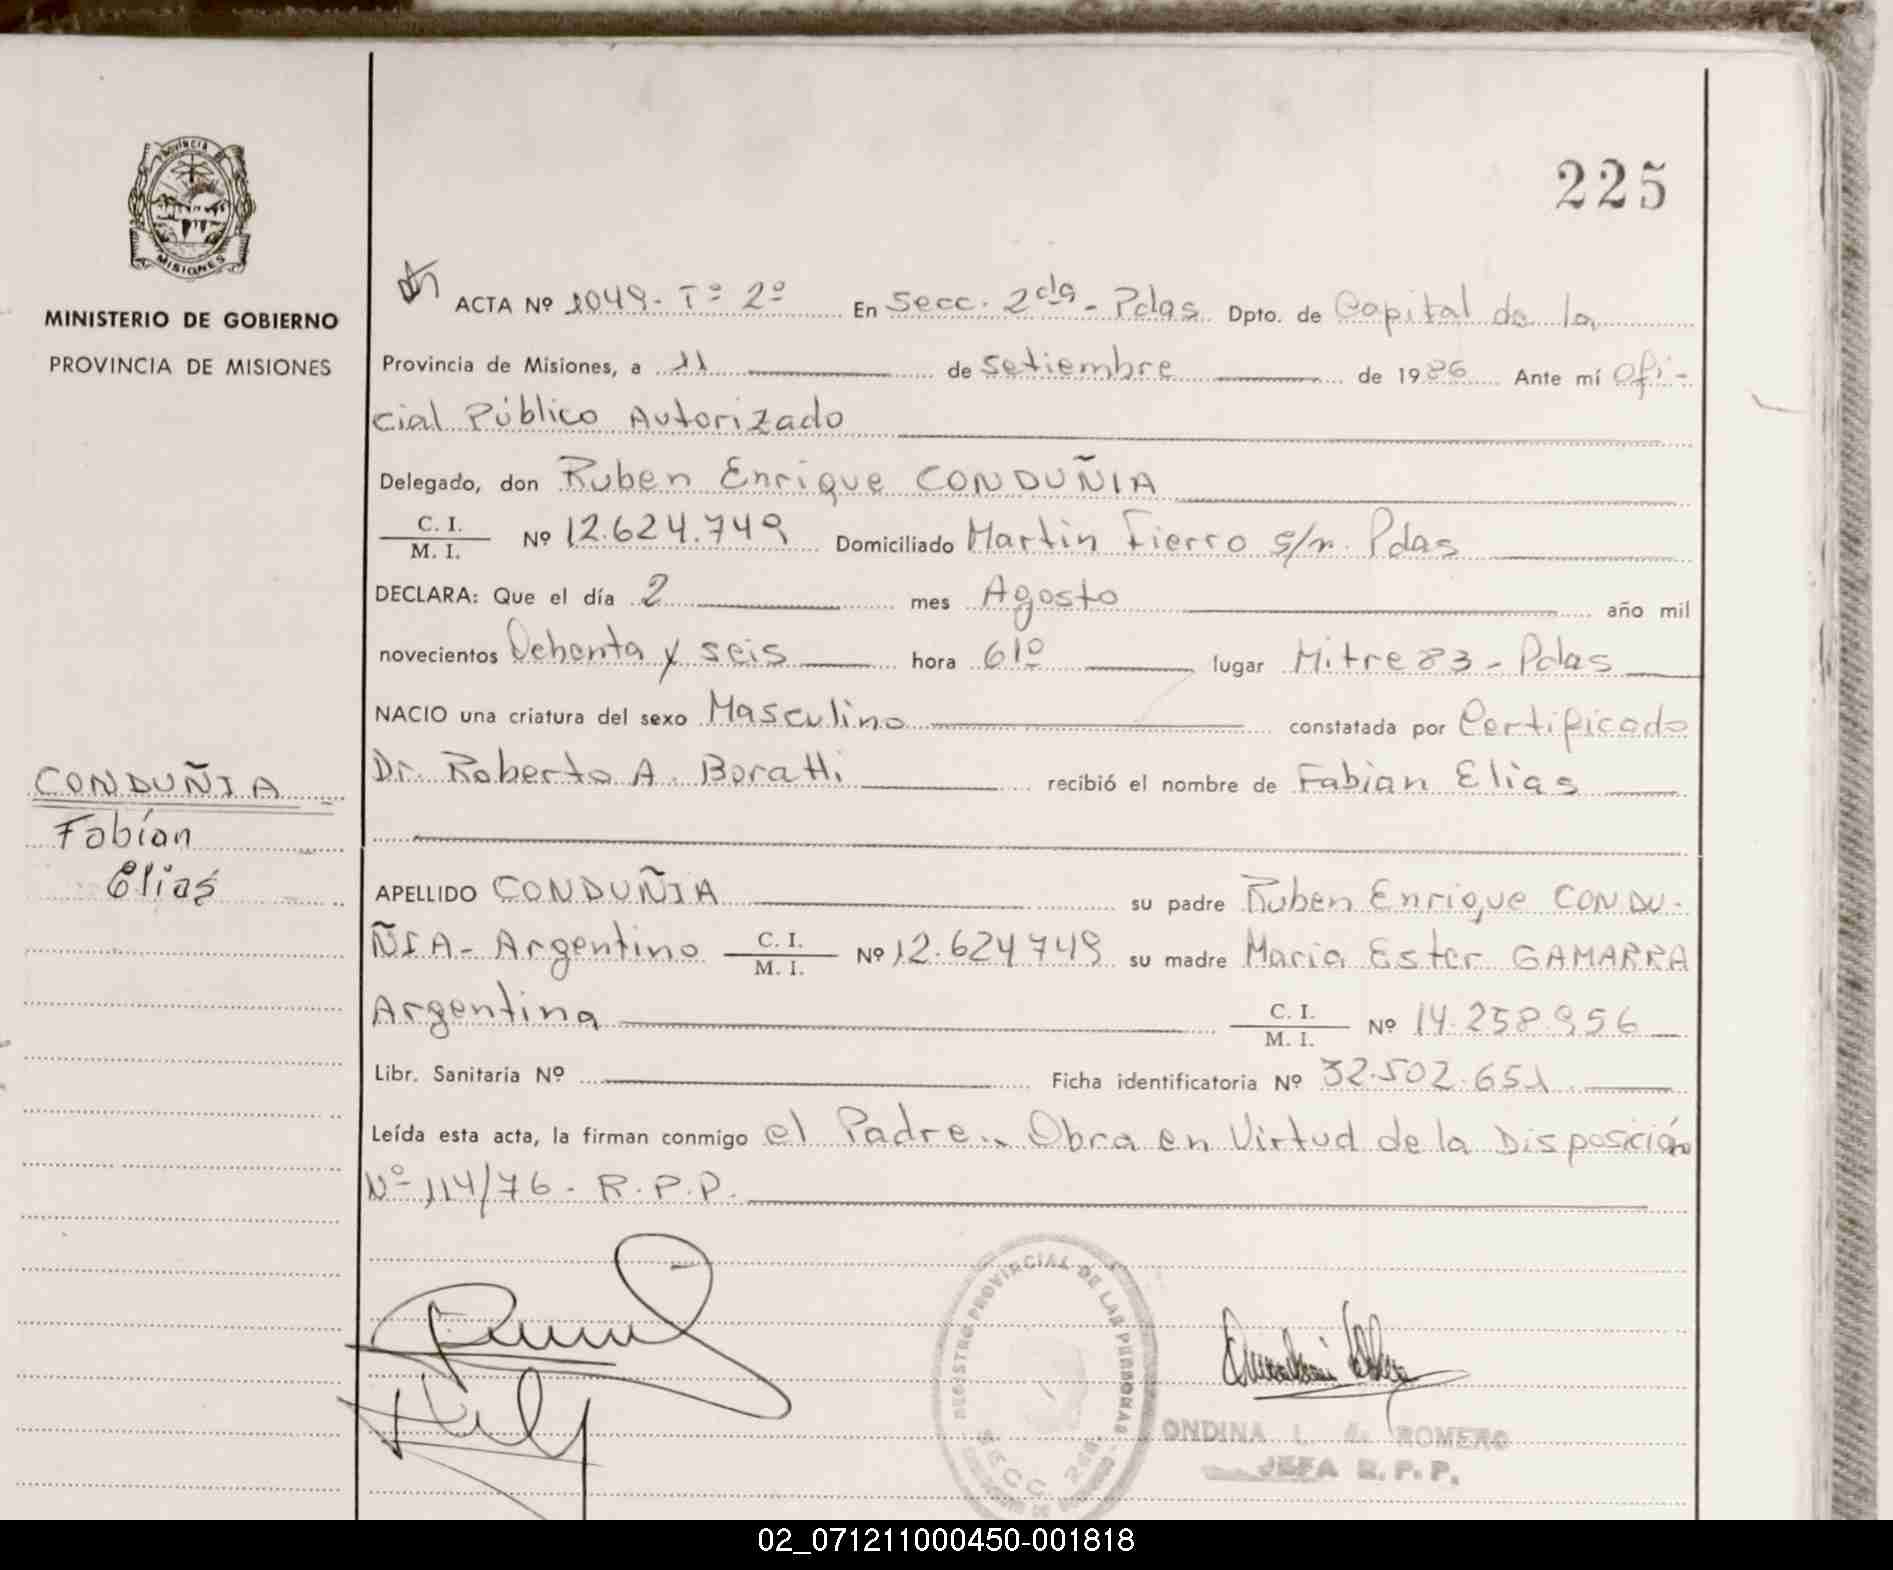 225
PROVINCIA DE
MISIONES
MINISTERIO DE GOBIERNO
PROVINCIA DE MISIONES
ACTA Nº 1049- Tº 2º En Secc. 2da - Pdas Dpto. de Capital de la
Provincia de Misiones, a 11 de setiembre de 1986 Ante mí Ofi-
cial Público Autorizado
Delegado, don Ruben Enrique CONDUÑIA
C. I.
M. I. Nº 12.624.749 Domiciliado Martin Fierro s/n. Pdas
DECLARA: Que el día 2 mes Agosto año mil
novecientos Ochenta y seis hora 610 lugar Mitre 83 - Pdas
NACIO una criatura del sexo Masculino constatada por Certificado
Dr. Roberto A. Boratti recibió el nombre de Fabian Elias
CONDUÑIA
Fabían
Elias
APELLIDO CONDUÑIA su padre Ruben Enrique CONDU-
ÑIA - Argentino C. I.
M. I. Nº 12.624749 su madre Maria Ester GAMARRA
Argentina C. I.
M. I. Nº 14.258.956
Libr. Sanitaria Nº Ficha identificatoria Nº 32.502.651
Leída esta acta, la firman conmigo el Padre.. Obra en Virtud de la Disposición
Nº 114/76 - R.P.P.
REGISTRO PROVINCIAL DE LAS PERSONAS
SECC. 2da.
ONDINA L. de ROMERO
JEFA R.P.P.
02_071211000450-001818